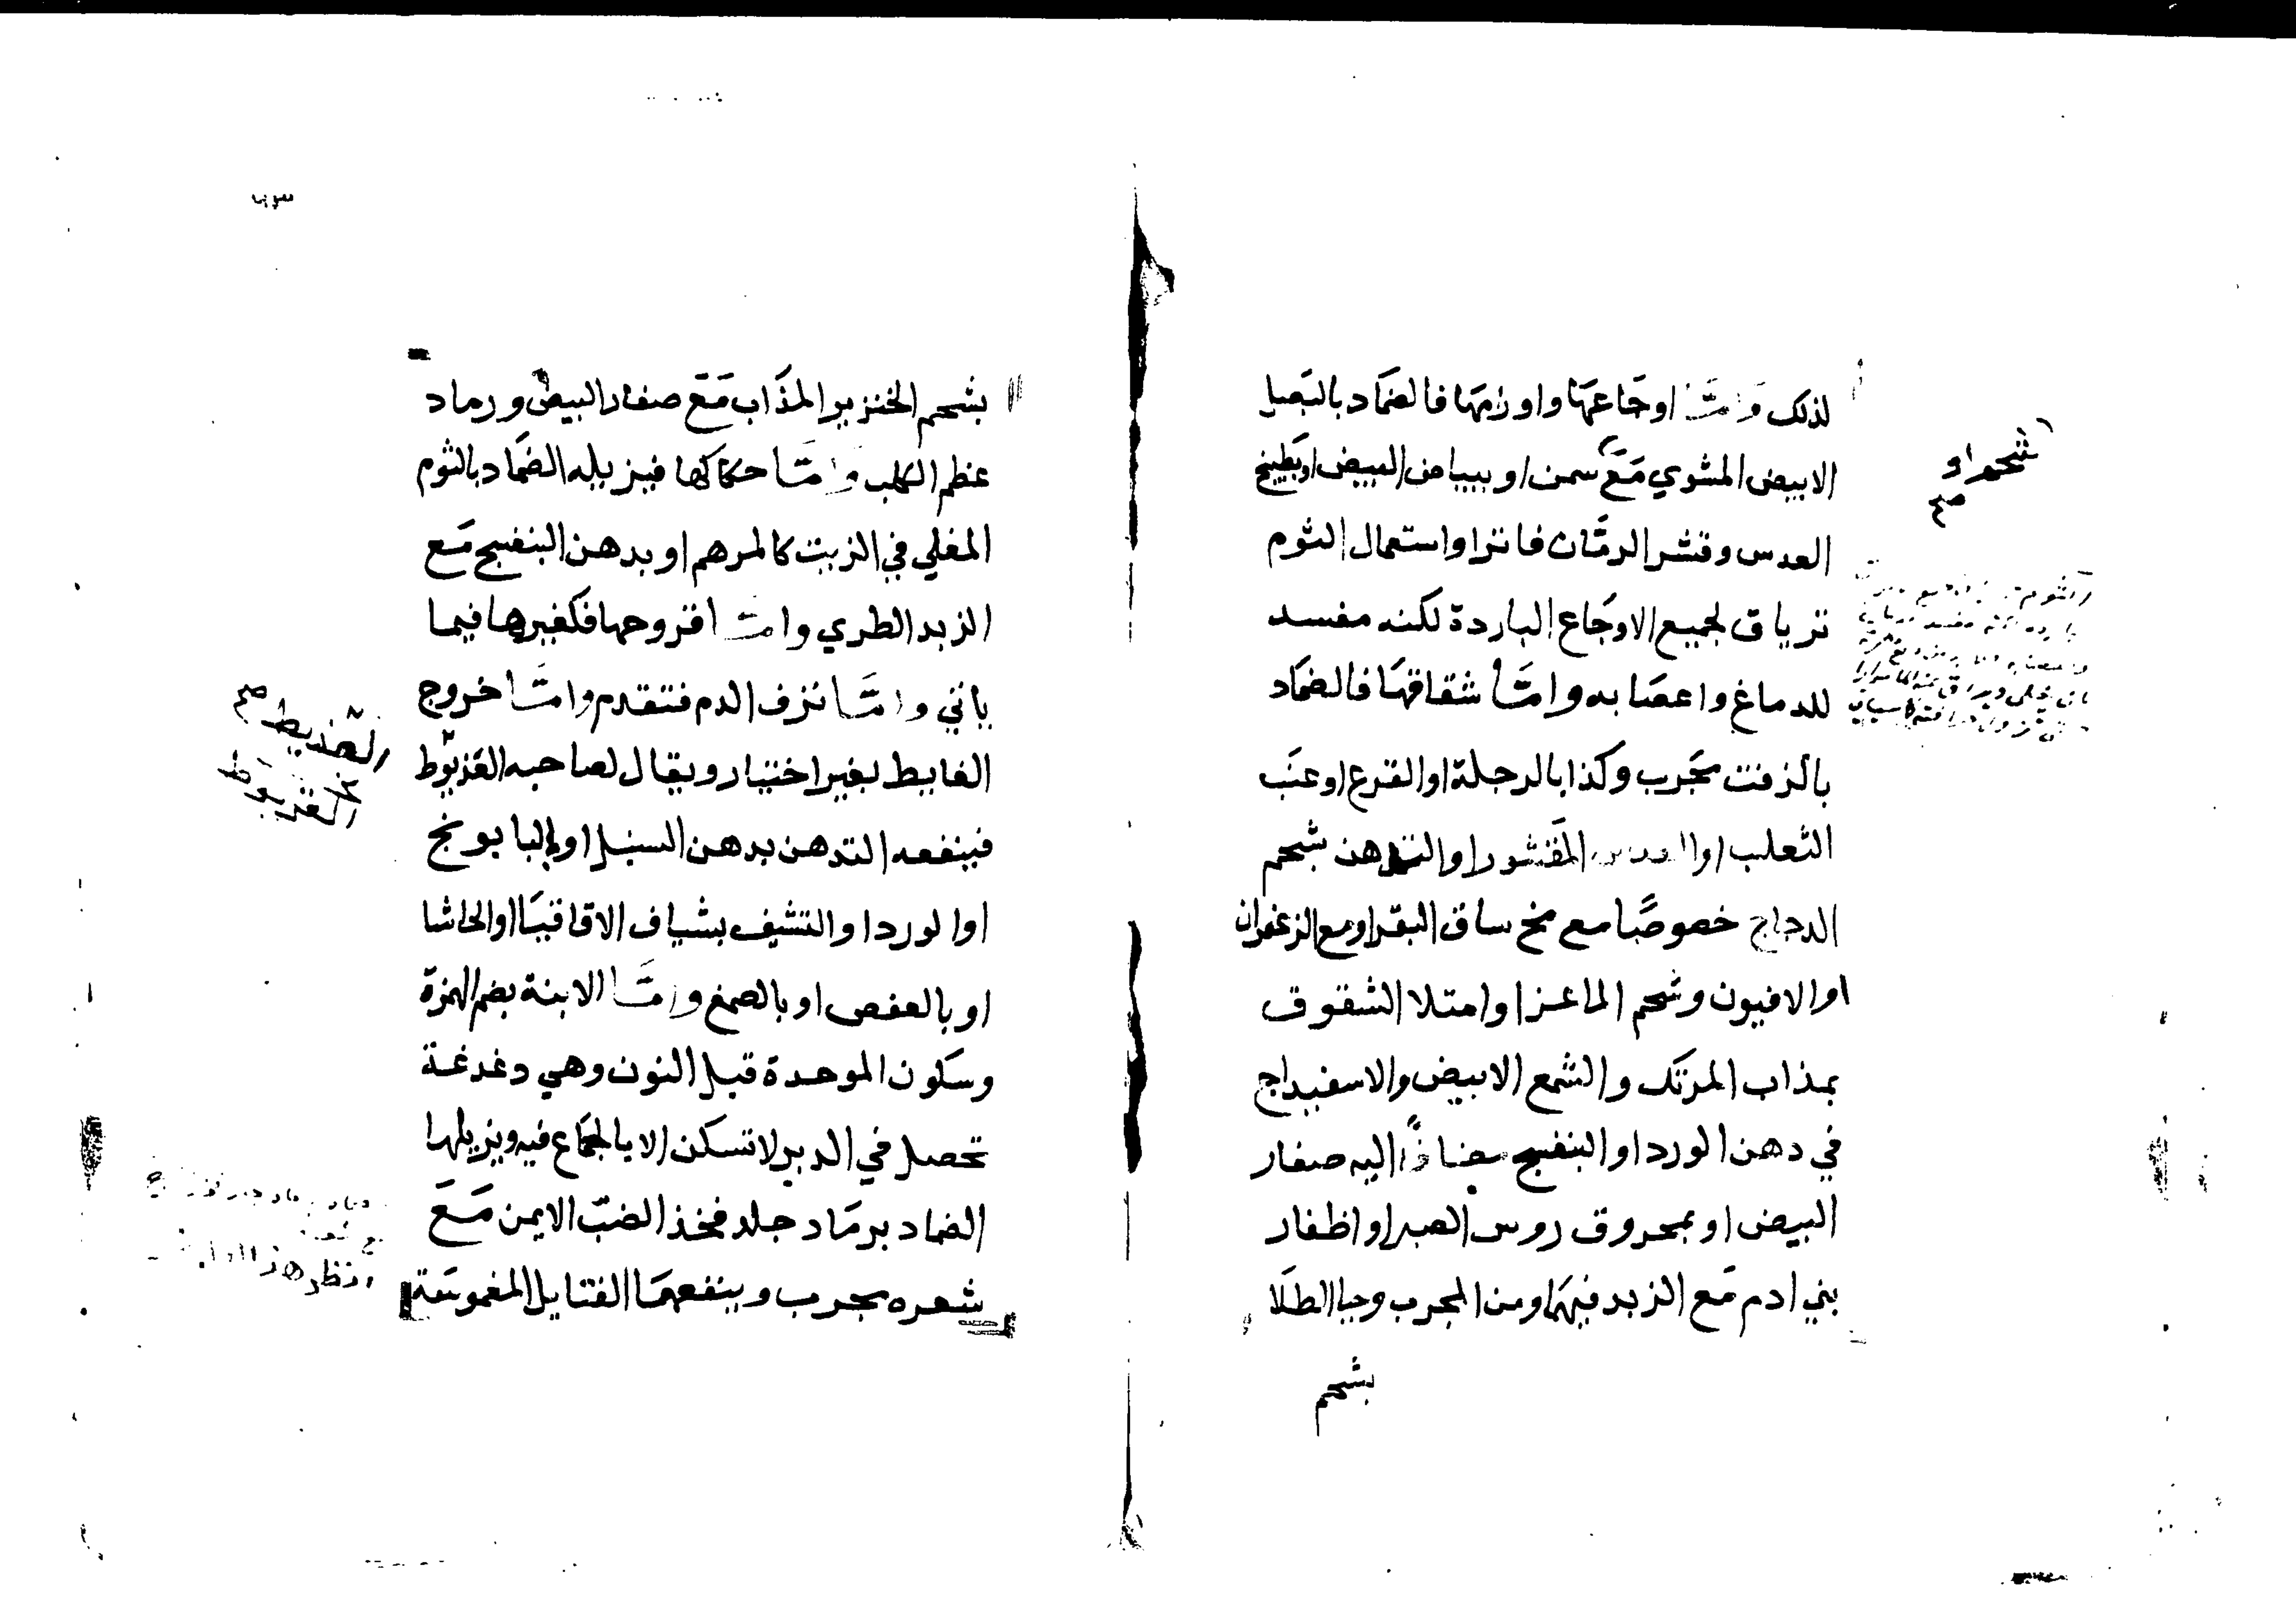 لذلك وامّا اوجاعها واورامها فالضماد بالبصل
الابيض المشوي مع سمن او ببياض البيض او بطيخ
شحم او
صح
العدس وقشر الرمّان فاترا واستعمال الثوم
ترياق لجميع الاوجاع الباردة لكنه مفسد
للدماغ واعصابه وامّا شقاقها فالضماد
بالزفت مجرب وكذا بالرجلة او القرع او عنب
الثعلب او العدس المقشور او التدهن بشحم
الدجاج خصوصًا مع مخ ساق البقر او مع الزعفران
او الافيون وشحم الماعز او امتلا الشقوق
بمذاب المرتك والشمع الابيض والاسفيداج
في دهن الورد او البنفسج مضافًا اليه صفار
البيض او بمحروق روس الصبر او اظفار
بني ادم مع الزبد فيهما ومن المجرب وحيا الطلا
بشحم
٦٣
بشحم الخنزير المذاب مع صفار البيض ورماد
عظم الكلب وامّا حكاكها فيزيله الضماد بالثوم
المغلي في الزيت كالمرهم او بدهن البنفسج مع
الزبد الطري وامّا قروحها فكغيرها فيما
ياتي وامّا نزف الدم فتقدم وامّا خروج
الغايط بغير اختيار ويقال لصاحبه العذيوط
العذيط صح
فينفعه التدهن بدهن السنبل او البابونج
او الورد او التشيف بشياف الاقاقيا او الحاشا
او بالعفص او بالصمغ وامّا الابنة بضم الهمزة
وسكون الموحدة قبل النون وهي دغدغة
تحصل في الدبر لا تسكن الا بالجماع فيه ويزيلها
الضماد برماد جلد فخذ الضبّ الايمن مع
شعره مجرب وينفعها الفتايل المغموسة